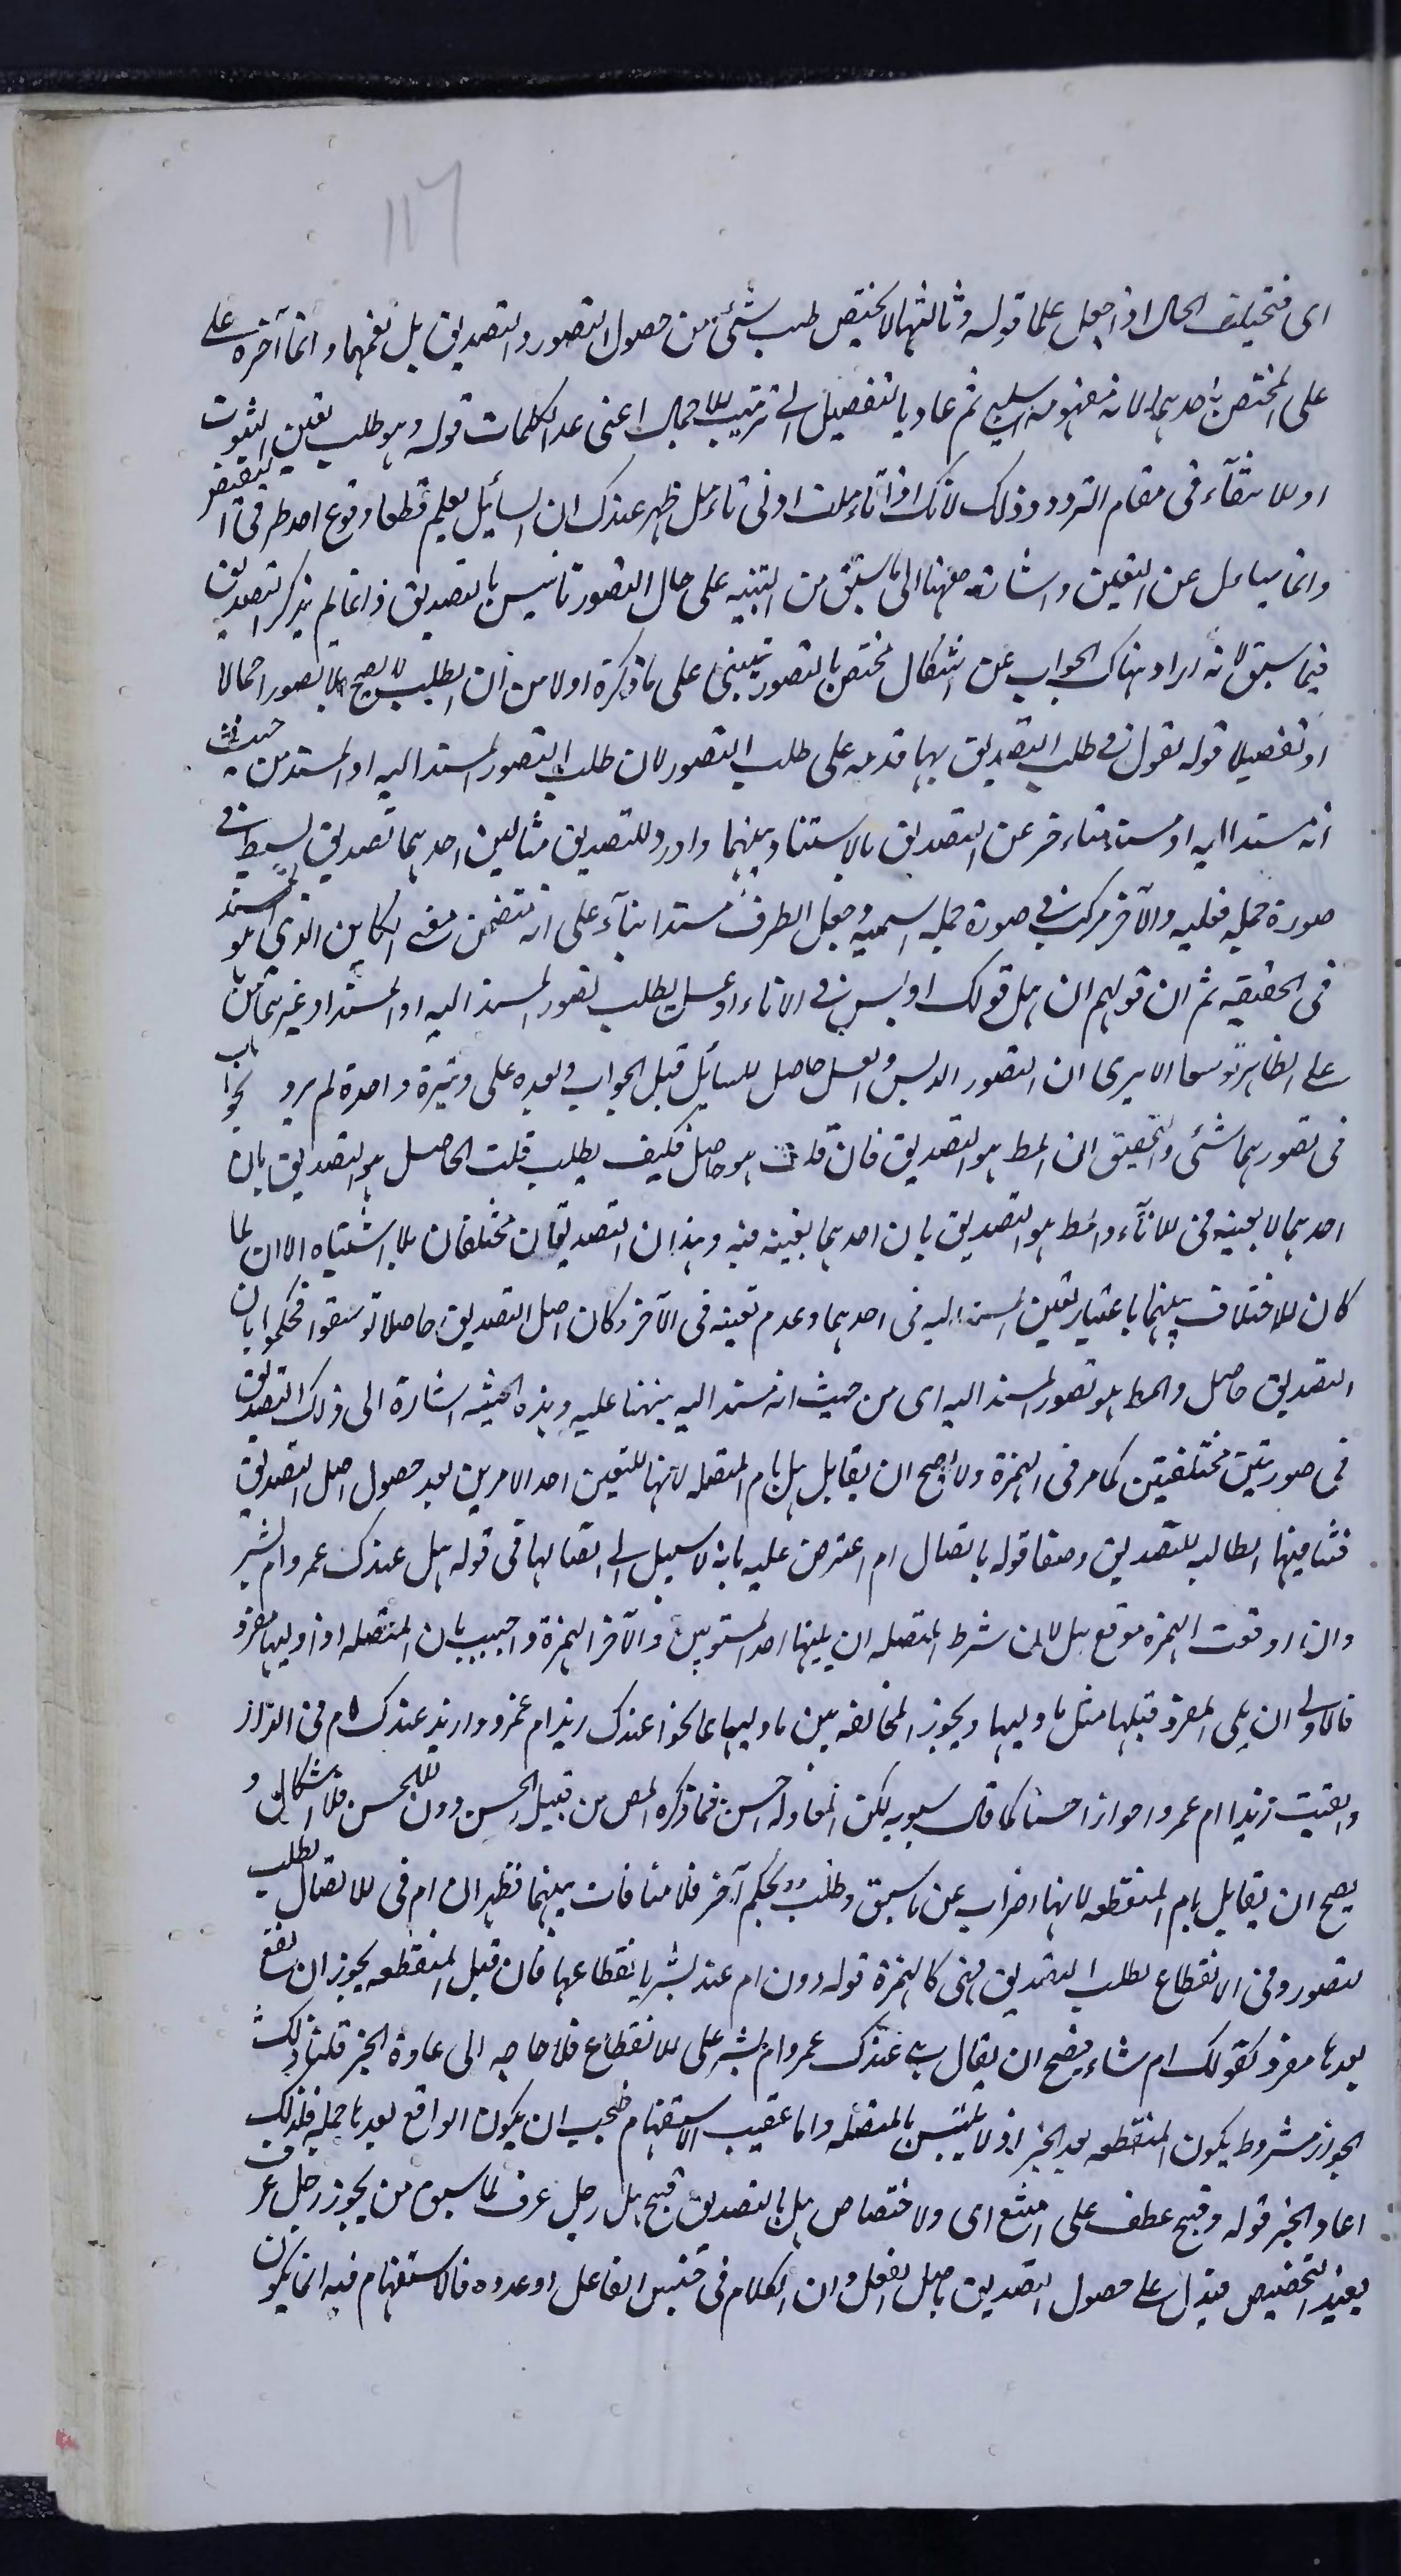 ١١٦
اى فتختلف الحال اذا جعل علما قوله وثالثها لا يختص طلب شئ من حصول التصور والتصديق بل تعمهما وانما اخره على
على المختص باحدهما لانه مفهومه سلبى ثم عاد بالتفصيل الى ترتيب الاجمال اعنى عد الكلمات قوله وهو طلب تعين الثبوت
او الانتفاء فى مقام التردد وذلك لانك اذا تاءملت ادنى تاءمل ظهر عندك ان السائل يعلم قطعا وقوع احد طرفى النقيض
وانما يساءل عن التعين واشار ههنا الى ما سبق من التنبيه على حال التصور تاسيس بالتصديق وانما لم يذكر التصديق
فيما سبق لانه اراد هناك الجواب عن اشكال مختص بالتصور يبتنى على ما ذكره اولا من ان الطلب لا يصح الا بتصور اجمالا
او تفصيلا قوله نقول فى طلب التصديق بهما قدمه على طلب التصور لان طلب التصور المسند اليه او المسند من حيث
انه مسند اليه او مسند متاءخر عن التصديق بالاستناد بينهما واورد للتصديق مثالين احدهما تصديق بسيط فى
صورة جمله فعليه والآخر مركب فى صورة جمله اسميه وجعل الظرف مسندا بناء على انه تتضمن معنى الكاين الذى هو المسند
فى الحقيقه ثم ان قولهم ان هل قولك ادبس فى الاناء او عسل يطلب تصور المسند اليه او المسند او غيرهما مبنى
على الظاهر توسعا الا يرى ان التصور الدبس والعسل حاصل للسائل قبل الجواب وبعده على وتيرة واحدة لم يزد بالجواب
فى تصورهما شئى والتحقيق ان المط هو التصديق فان قلت هو حاصل فكيف يطلب قلت الحاصل هو التصديق بان
احدهما لا بعينه فى الاناء والمط هو التصديق بان احدهما بعينه فيه وهذان التصديقان مختلفان بلا اشتباه الا ان لما
كان الاختلاف بينهما باعتبار تعين المسند اليه فى احدهما وعدم تعينه فى الآخر وكان اصل التصديق حاصلا توسعوا فحكموا بان
التصديق حاصل والمط هو تصور المسند اليه اى من حيث انه مسند اليه ينهنا عليه وبهذه الحيثيه اشارة الى ذلك التصديق
فى صورتين مختلفتين كما مر فى الهمزة ولا يصح ان يقابل هل بام المتصله لانها للتعين احد الامرين بعد حصول اصل التصديق
فتنافيها الطالبه للتصديق وصفا قوله باتصال ام اعترض عليه بانه لا سبيل الى اتصالها فى قوله هل عندك عمرو ام بشر
وان اوقعت الهمزه موقع هل لان من شرط المتصله ان يليها احد المستويين والآخر الهمزة واجيب بان المتصله اذا وليها مفرد
فالاولى ان يلى المفرد قبلها مثل ما وليها ويجوز المخالفه بين ما وليهما نحو اعندك زيد ام عمرو وازيد عندك ام فى الدار
والقيت زيدا ام عمروا جوازا حسنا كما قال سيبويه لكن المعادله احسن فما ذكره المص من قبيل الحسن دون الاحسن فلا اشكال و
يصح ان يقابل بام المنقطعه لانها اضراب عن ما سبق وطلب لحكم آخر فلا منافات بينهما فظهر ان ام فى الاتصال لطلب
لتصور وفى الانقطاع لطلب التصديق فهى كالهمزة قوله دون ام عند بشر بانقطاعها فان قيل المنقطعه يجوز ان يقع
بعدها مفرد كقولك ام شاء فيصح ان يقال هل عندك عمرو ام بشر على الانقطاع فلا حاجه الى اعادة الخبر قلنا ذلك
الجواز مشروط بكون المنقطعه بعد الخبر اذ لا يلتبس بالمتصله واما عقيب الاستفهام فيجب ان يكون الواقع بعدها جمله فلذلك
اعاد الخبر قوله وقبح عطف على امتنع اى ولاختصاص هل بالتصديق قبح هل رجل عرف لما سبق من يجوز رجل عرف
يفيد التخصيص فيدل على حصول التصديق باصل الفعل وان الكلام فى جنس الفاعل او عدده فالاستفهام فيه انما يكون